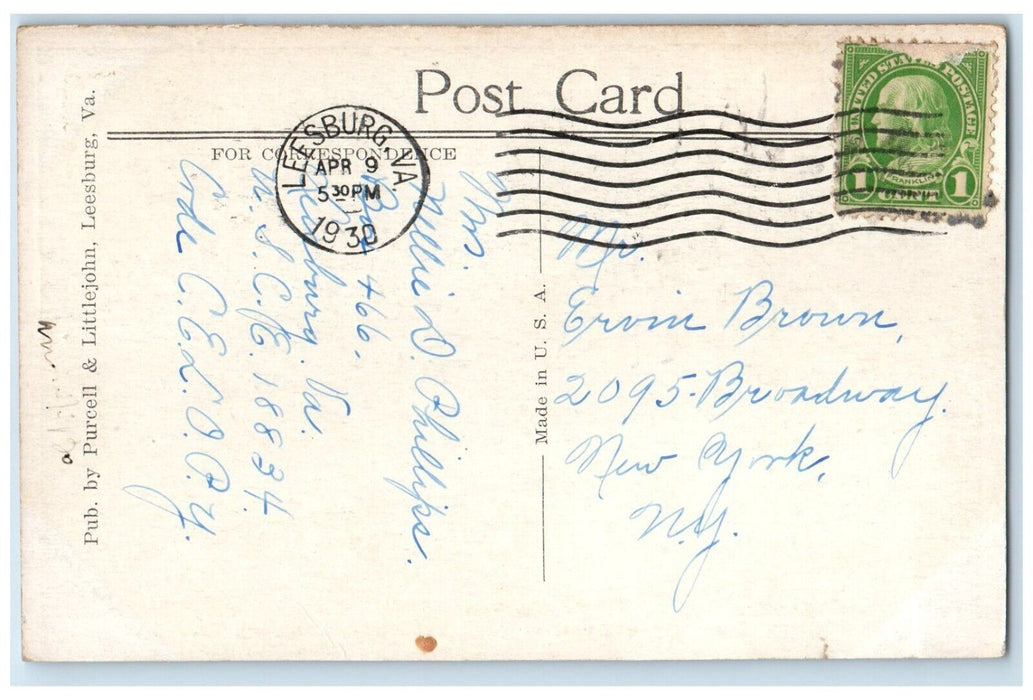 Post Card
FOR CORRESPONDENCE
LEESBURG, VA.
APR 9
5 30 PM
1930
UNITED STATES POSTAGE
FRANKLIN
1 CENT 1
Mrs.
Millie D. Phillips.
Box 466.
Leesburg. Va.
U. S. C. E. 1834.
Orde C. E. L. O. P. Y.
Mr.
Ervin Brown,
2095-Broadway.
New York,
N.Y.
Made in U. S. A.
Pub. by Purcell & Littlejohn, Leesburg, Va.